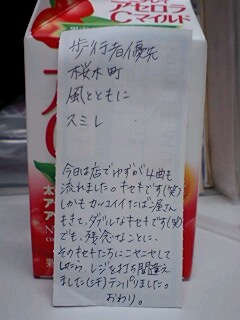 アセロラ
Cマイルド
歩行者優先
桜木町
風とともに
スミレ
今日は店でゆずが4曲も
流れました。キセキです(笑)
しかもカッコイイたばこ屋さん
もきて、ダブルなキセキです(笑)
でも、残念なことに、
そのキセキたちにニヤニヤして
したら、レジを打ち間違え
ました(汗)テンパりました。
おわり。